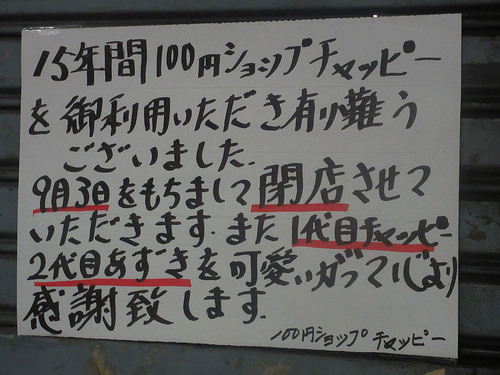 15年間100円ショップチャッピー
を御利用いただき有り難う
ございました.
9月3日をもちまして閉店させて
いただきます.また1代目チャッピー
2代目あずきを可愛いがって心より
感謝致します.
100円ショップ チャッピー